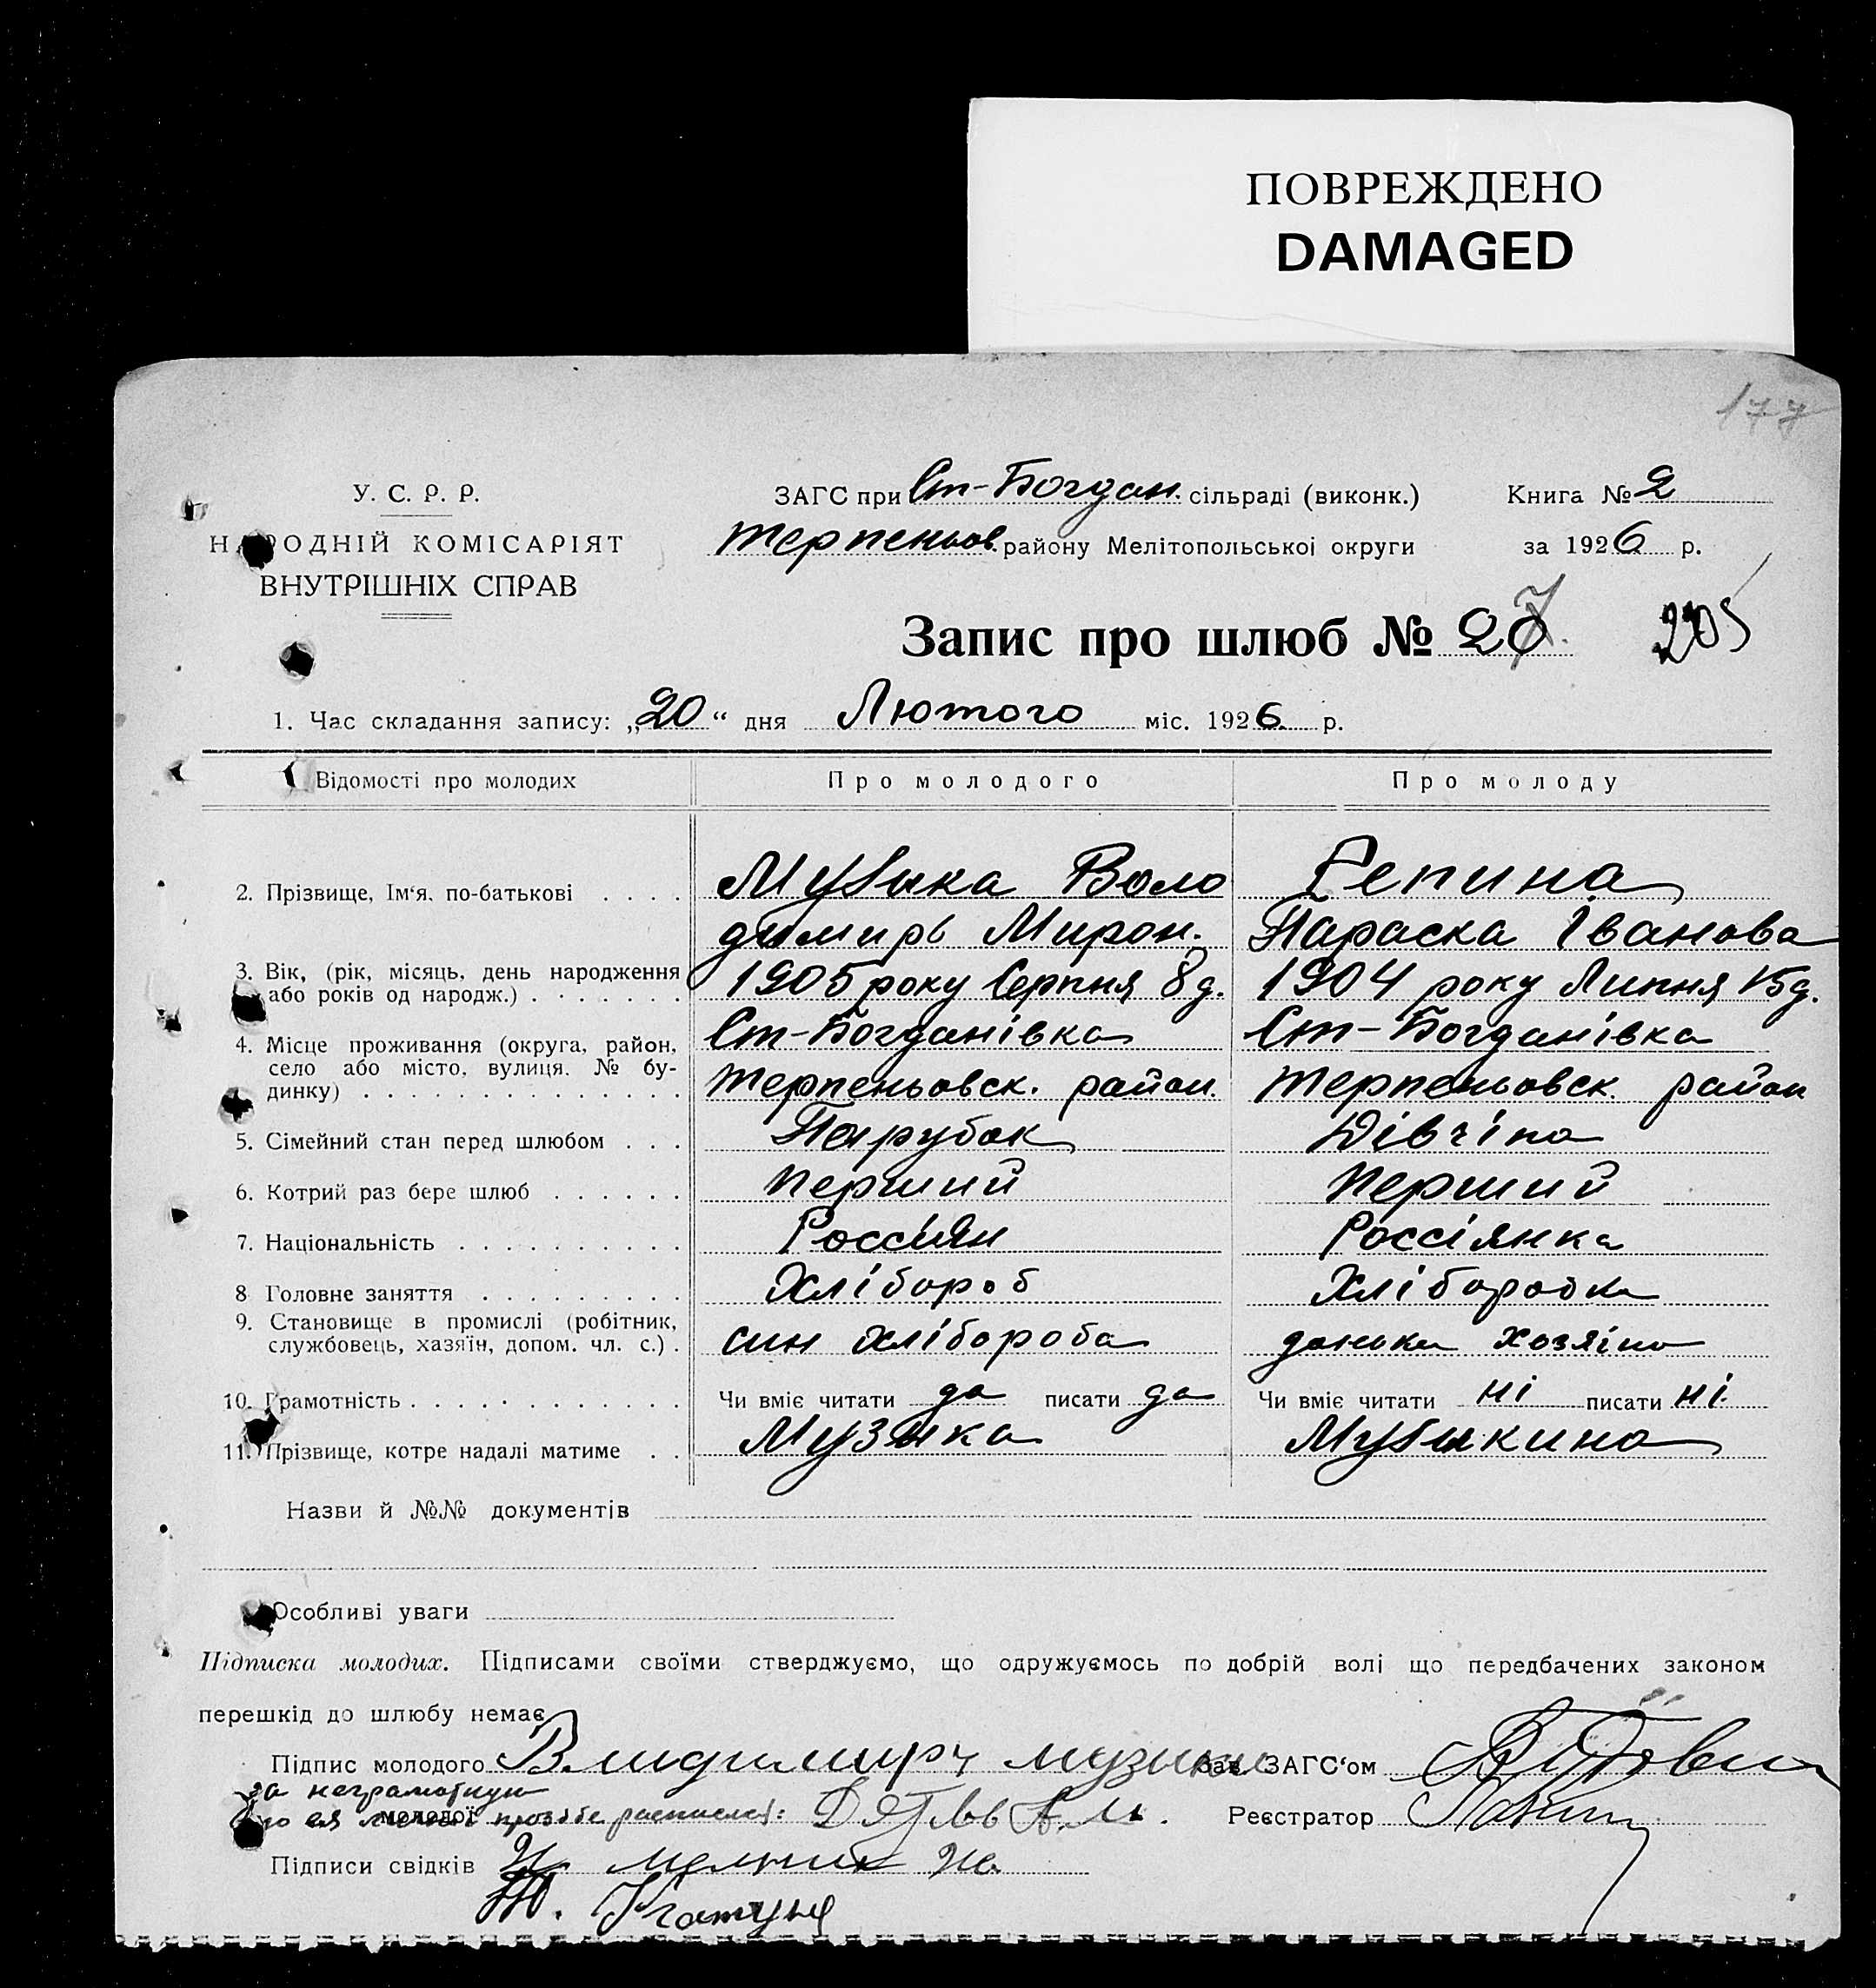 ПОВРЕЖДЕНО
DAMAGED
177
У. С. Р. Р.
НАРОДНІЙ КОМІСАРІЯТ
ВНУТРІШНІХ СПРАВ
ЗАГС при Ст-Богдан. сільраді (виконк.)
Книга № 2
Терпеньов. району Мелітопольської округи
за 1926 р.
Запис про шлюб № 27. 205
1. Час складання запису: „20“ дня Лютого міс. 1926 р.
Відомості про молодих Про молодого Про молоду
2. Прізвище, Ім'я, по-батькові . . . . Музыка Воло Репина
димирь Мирон. Параска Іванова
3. Вік, (рік, місяць, день народження 1905 року Серпня 8 д. 1904 року Липня 15 д.
або років од народж.) . . . . . . .
4. Місце проживання (округа, район, Ст-Богданівка Ст-Богданівка
село або місто, вулиця, № бу-
динку) . . . . . . . . . . . . . . Терпеньовск. район. Терпеньовск. район
5. Сімейний стан перед шлюбом . . . Парубок Дівчіна
6. Котрий раз бере шлюб . . . . . . Перший Перший
7. Національність . . . . . . . . . . Россиян Россіянка
8 Головне заняття . . . . . . . . . Хлібороб Хліборобка
9. Становище в промислі (робітник,
службовець, хазяїн, допом. чл. с.) . син хлібороба донька хозяіна
10. Грамотність . . . . . . . . . . . . Чи вміє читати да писати да Чи вміє читати ні писати ні.
11. Прізвище, котре надалі матиме . . Музыка Музыкина
Назви й №№ документів
Особливі уваги
Підписка молодих. Підписами своїми стверджуємо, що одружуємось по добрій волі що передбачених законом
перешкід до шлюбу немає
Підпис молодого Владимиръ Музыка Зав. ЗАГС'ом
за неграмотную
молодої по ея личной прозьбе росписался:
Реєстратор
Підписи свідків